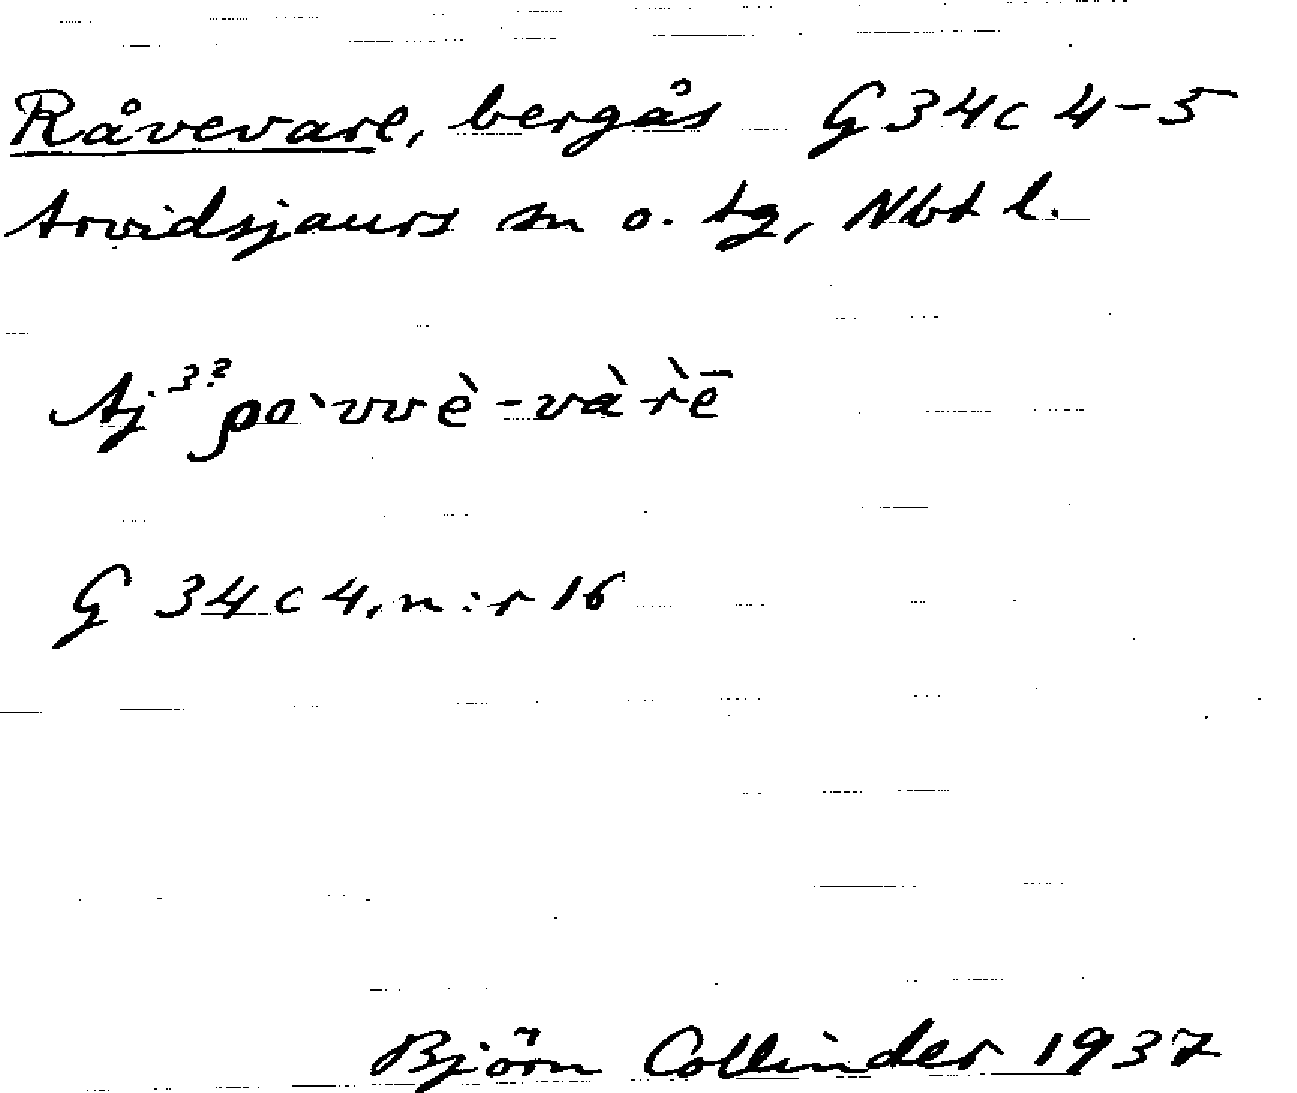 Råvevare, bergås G 34 c 4-5
Arvidsjaurs sn o. tg, Nbt l.
Aj 3? ρo`vvè-và-rè̄
G 34 c 4, n:r 16
Björn Collinder 1937